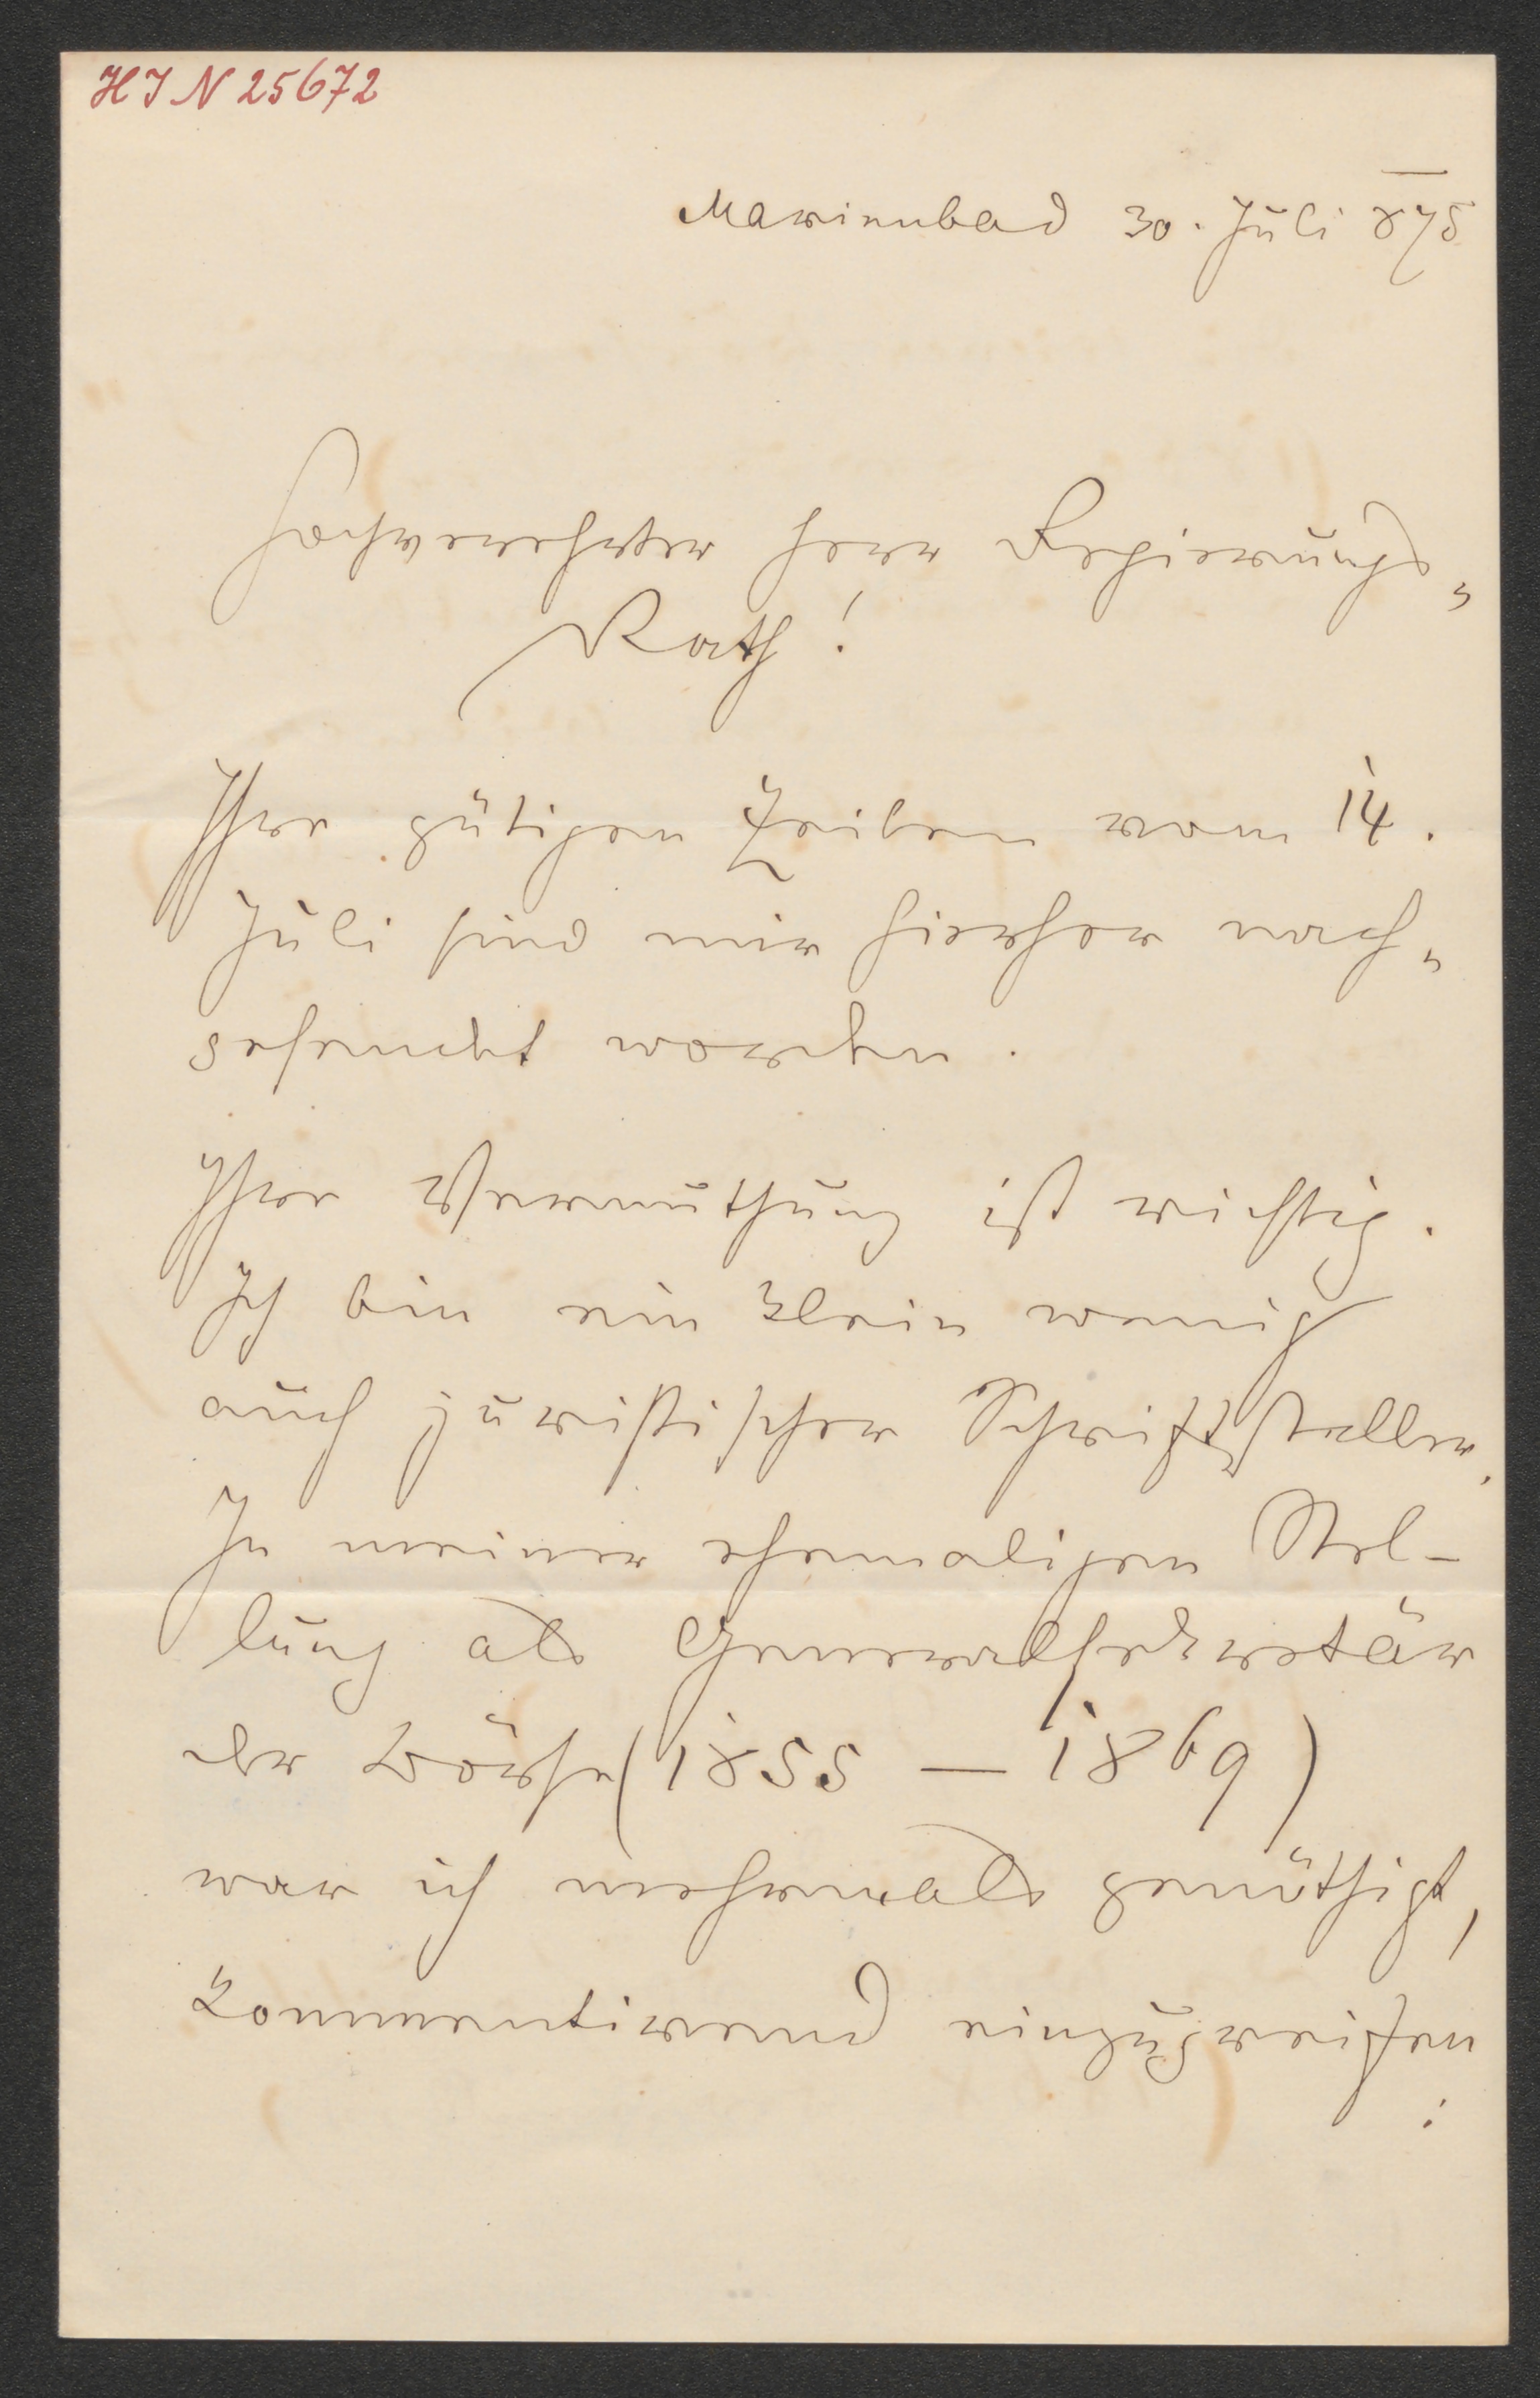 HIN 25672
Marienbad 30. Juli 875
Hochverehrter Herr Regierungs„
Rath!
Ihre gütigen Zeilen vom 14.
Juli sind mir hierher nach„
gesendet worden.
Ihre Vermuthung ist richtig.
Ich bin ein klein wenig
auch juristischer Schriftsteller.
In meiner ehemaligen Stel-
lung als Generalsekretär
der Börse (1855 — 1869)
war ich mehrmals genöthigt,
kommentirend einzugreifen
: